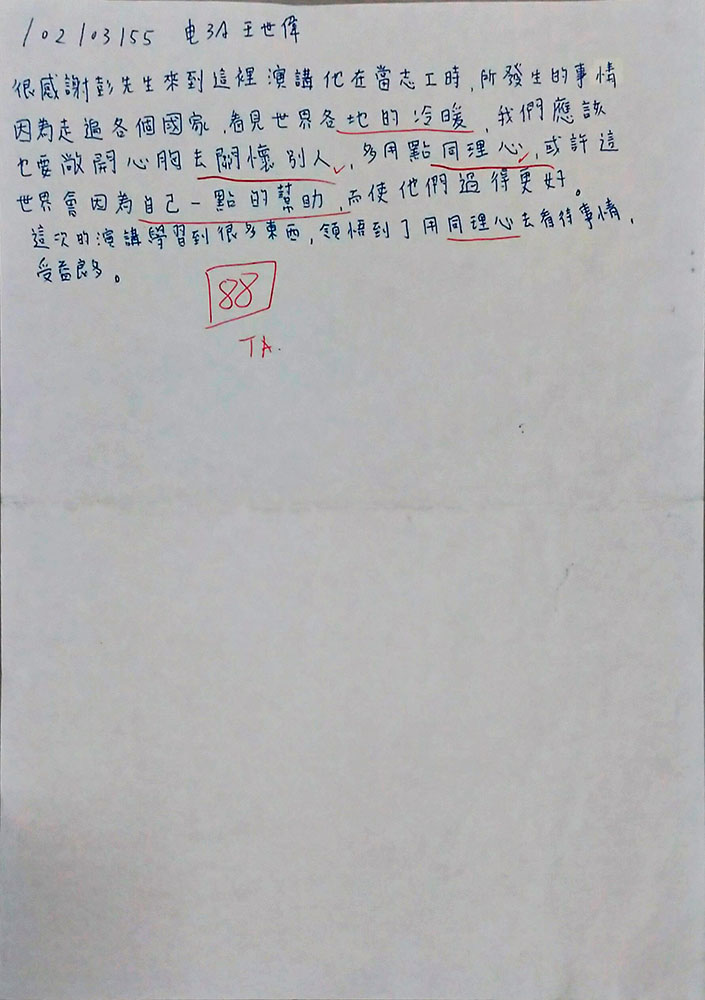 102103155 电3A 王世偉
很感謝彭先生來到這裡演講他在當志工時,所發生的事情
因為走遍各個國家,看見世界各地的冷暖,我們應該
也要敞開心胸去關懷別人,多用點同理心,或許這
世界會因為自己一點的幫助,而使他們過得更好。
這次的演講學習到很多東西,領悟到了用同理心去看待事情,
受益良多。
88
TA.